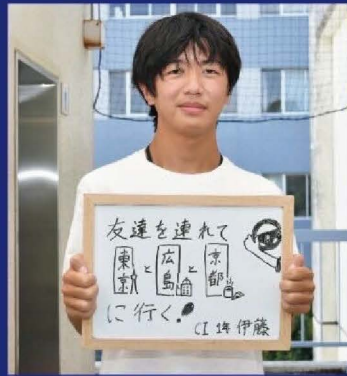 友達を連れて
東京と広島と京都
に行く!
CI 1年 伊藤